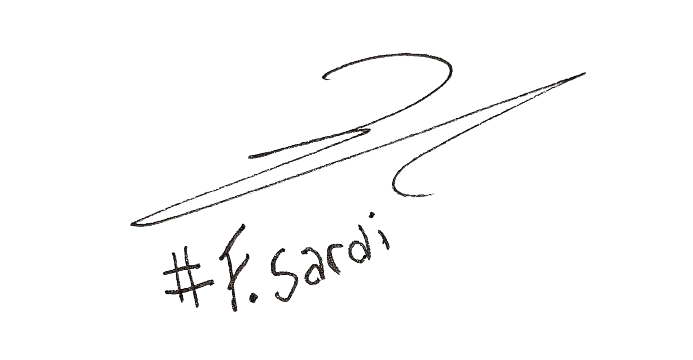 #F. Sardi